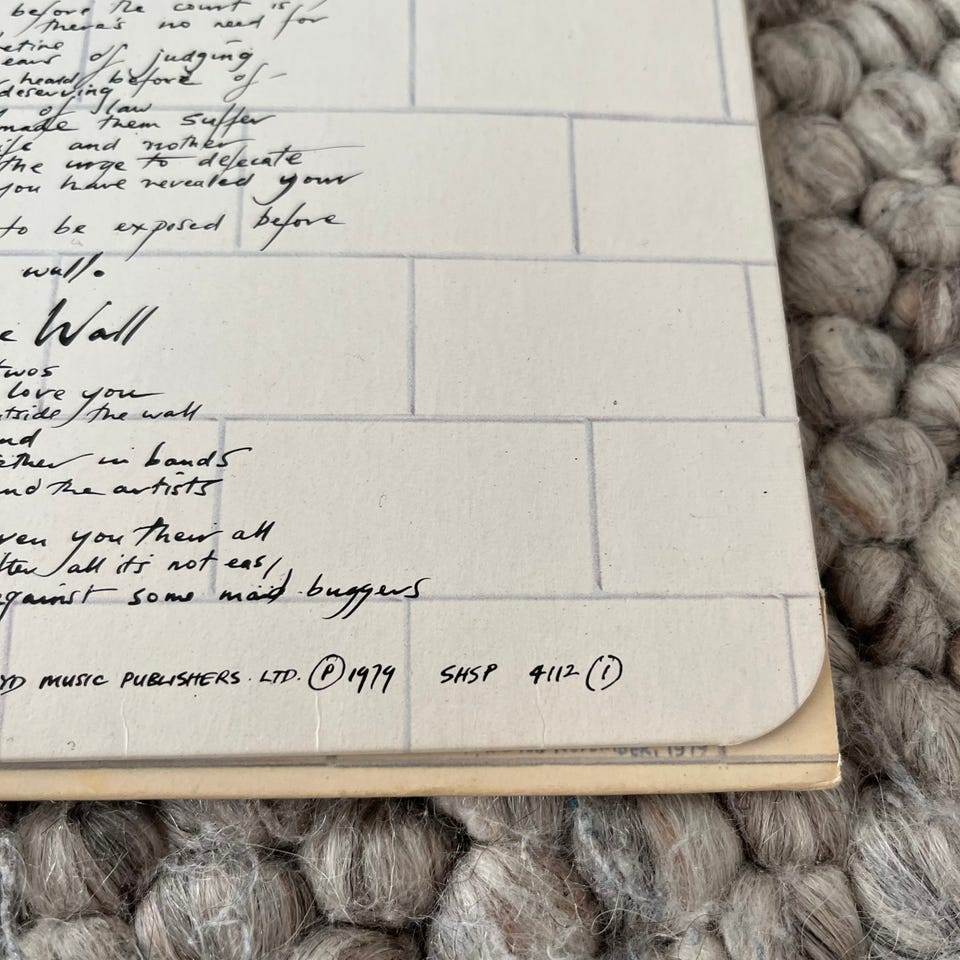 before the court is
there's no need for
ears of judging
heard before of
deserving
of law
made them suffer
and mother
the urge to defecate
you have revealed your
to be exposed before
wall.
Wall
twos
love you
the wall
in bands
the artists
you their all
all it's not easy
against some mad buggers
MUSIC PUBLISHERS. LTD. Ⓟ 1979 SHSP 4112 (1)
1979